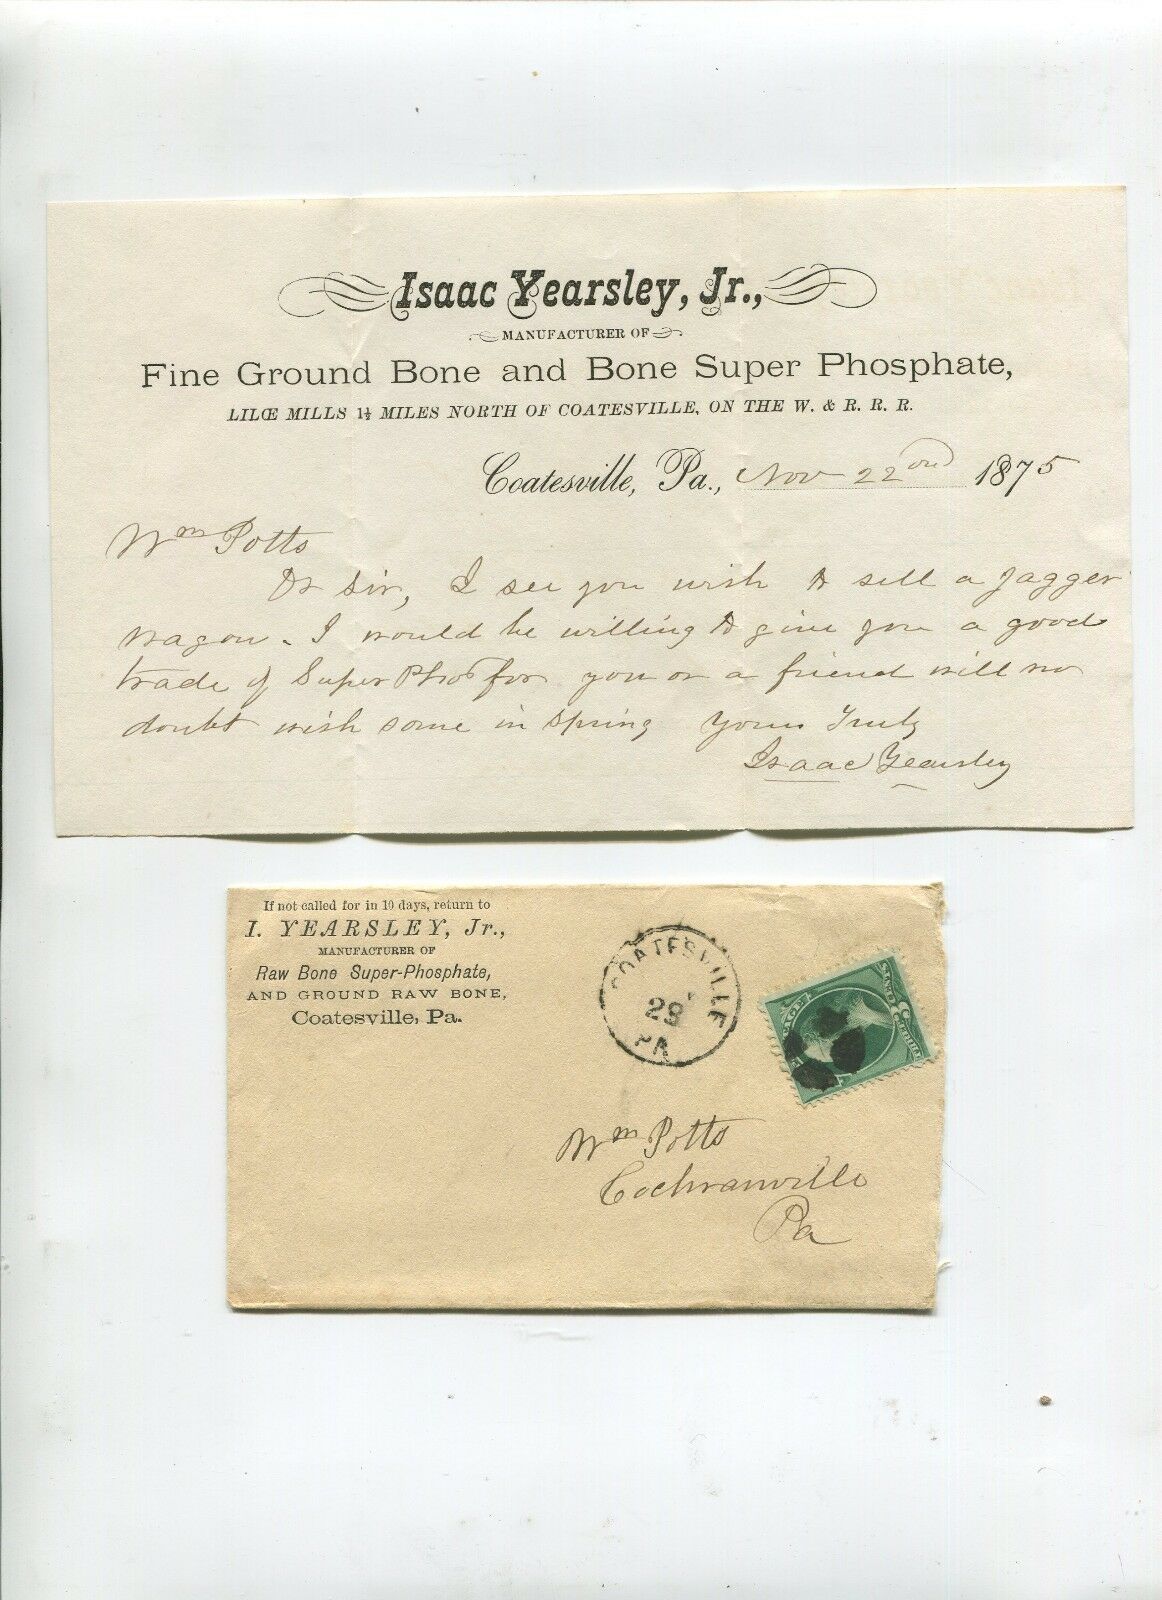 Isaac Yearsley, Jr.,
MANUFACTURER OF
Fine Ground Bone and Bone Super Phosphate,
LILŒ MILLS 1½ MILES NORTH OF COATESVILLE, ON THE W. & R. R. R.
Coatesville, Pa., Nov 22nd 1875
Wm Potts
Dr Sir, I see you wish to sell a Jagger
wagon. I would be willing to give you a good
trade of Super Phos for you or a friend will no
doubt wish some in Spring Yours Truly
Isaac Yearsley
If not called for in 10 days, return to
I. YEARSLEY, Jr.,
MANUFACTURER OF
Raw Bone Super-Phosphate,
AND GROUND RAW BONE,
Coatesville, Pa.
COATESVILLE
PA
THREE CENTS
Wm Potts
Cochranville
Pa